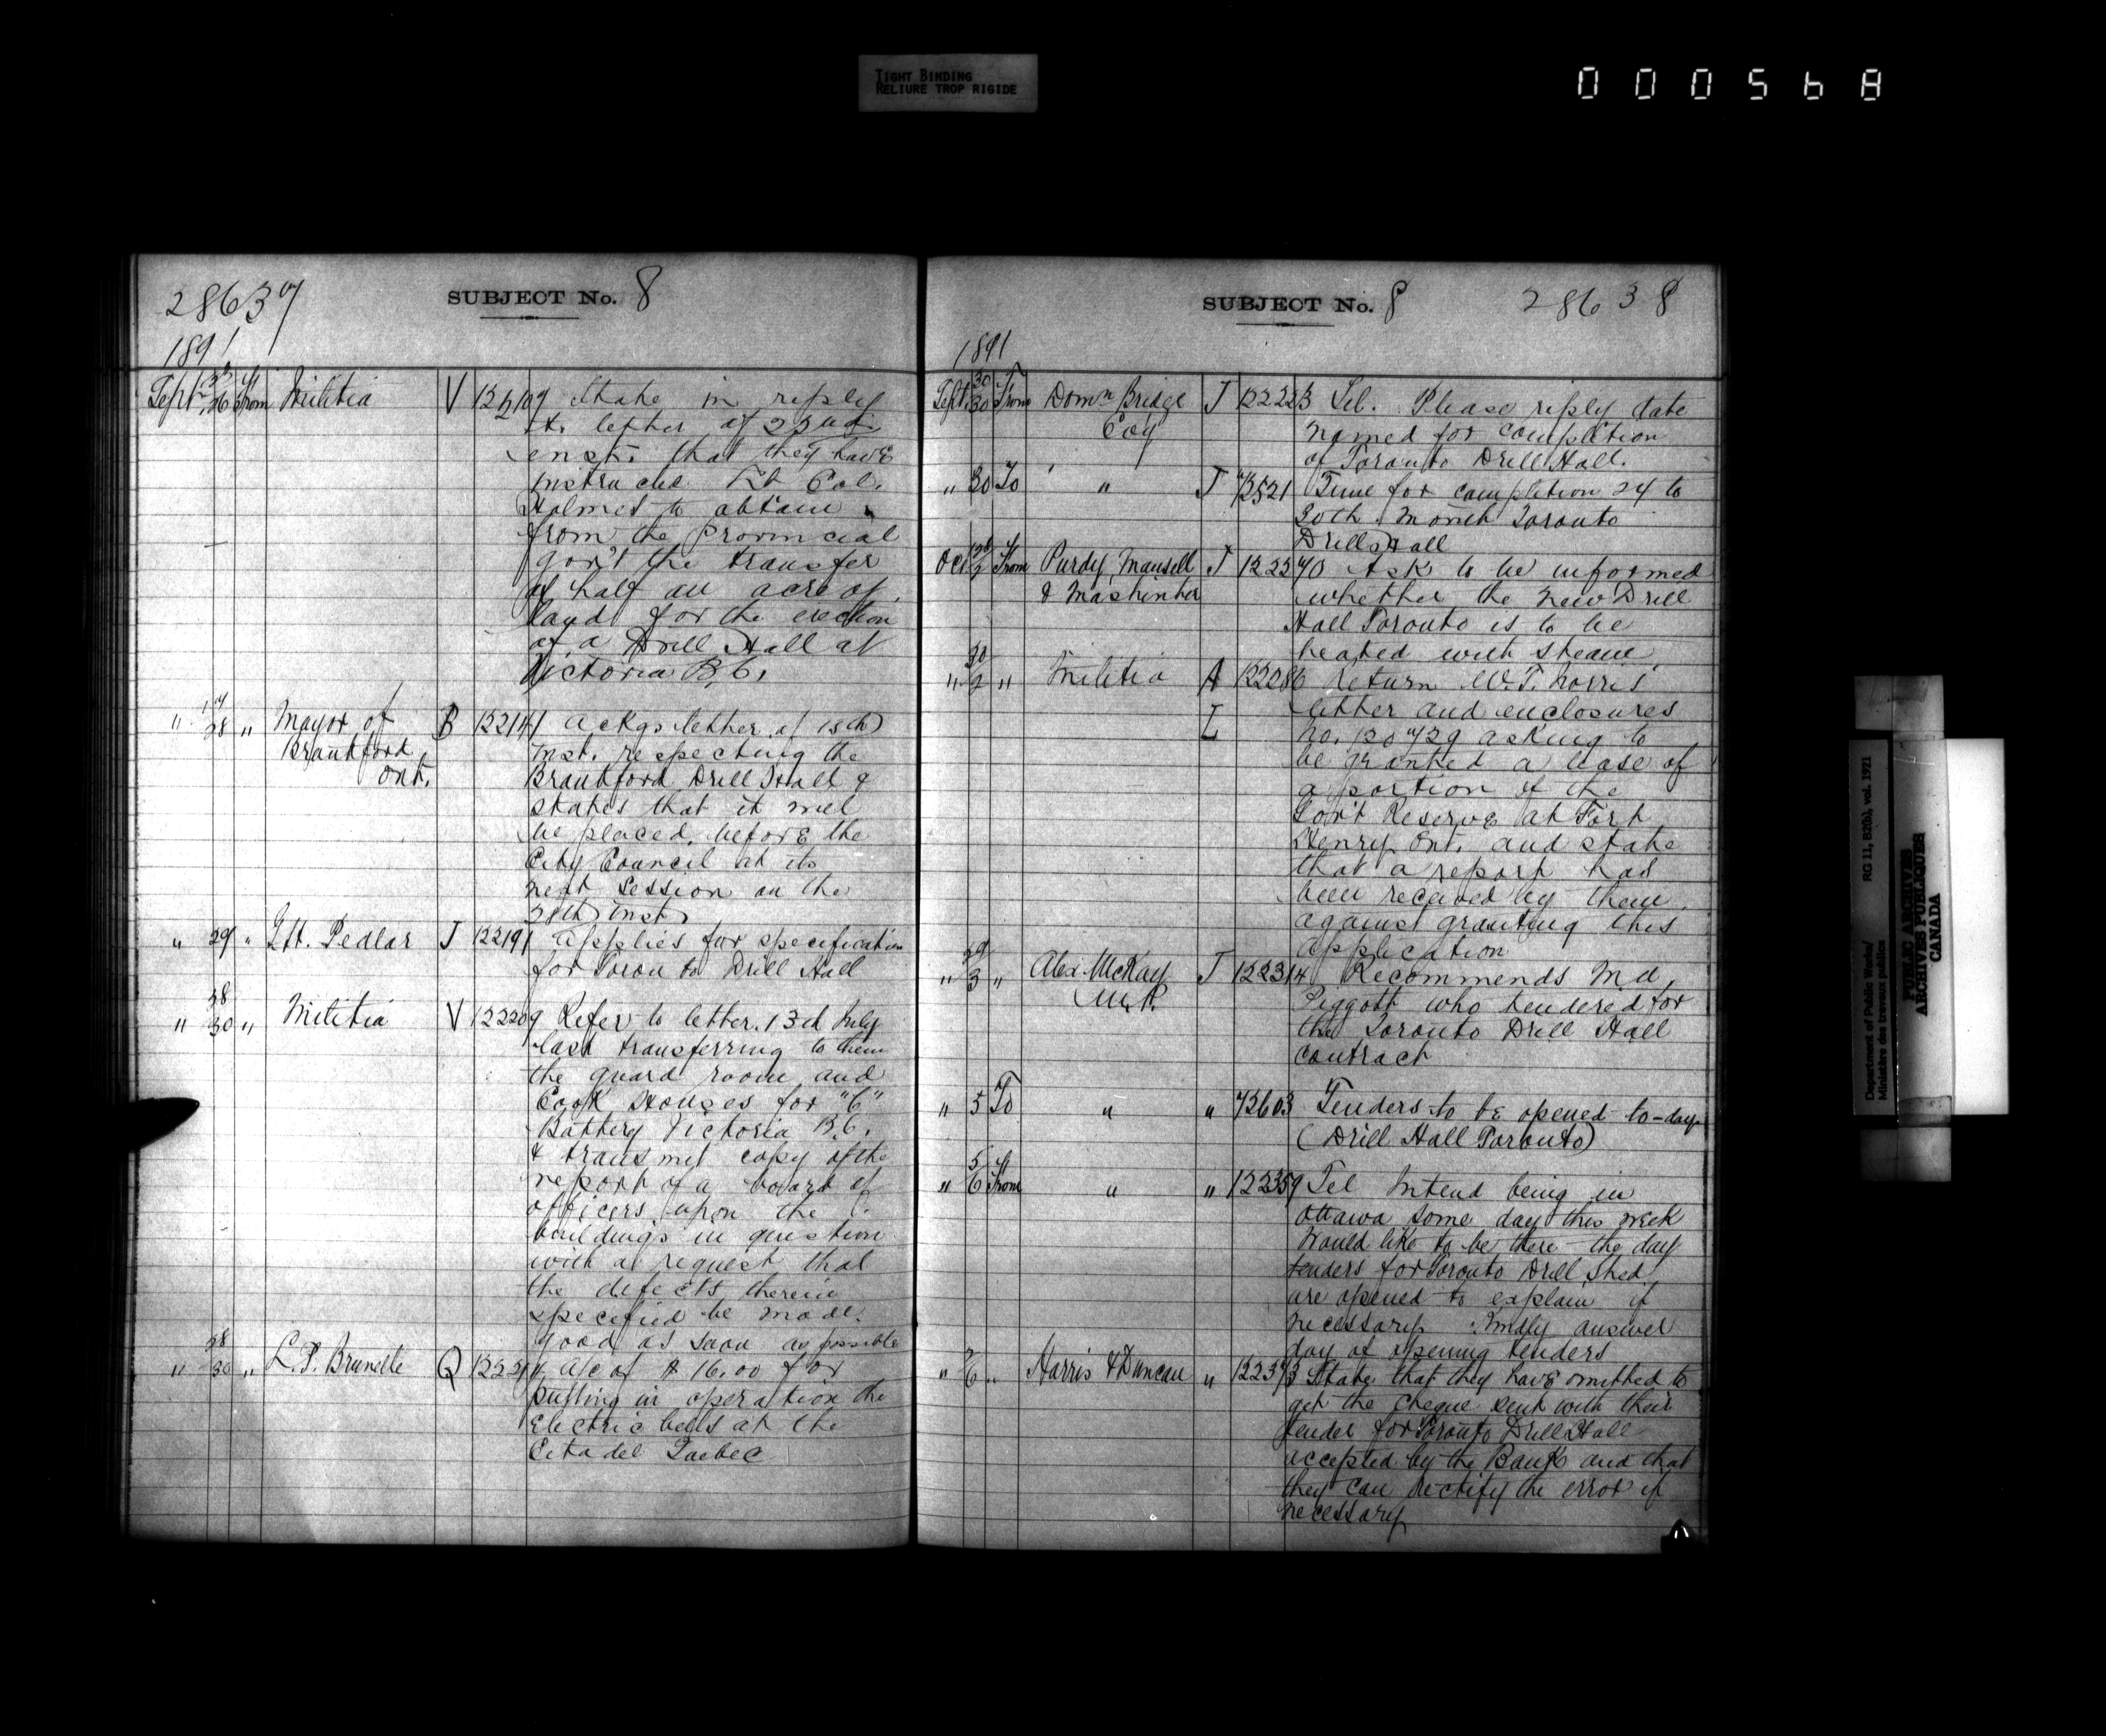 TIGHT BINDING
RELIURE TROP RIGIDE
000568
28637
SUBJECT No. 8
1891
Sept. 26 From Militia V 122107 State in reply
to letter of 22nd
inst. that they have
instructed Lt Col.
Holmes to obtain
from the Provincial
Gov't the transfer
of half an acre of
land for the erection
of a Drill Hall at
Victoria B.C.
" 28 " Mayor of B 122141 Ackgs letter of 15th
Brantford inst. respecting the
Ont. Brantford Drill Hall &
states that it will
be placed before the
City Council at its
next Session on the
28th inst
" 29 " Pedlar J 122191 Applies for specification
for Toronto Drill Hall
" 28/30 " Militia V 122209 Refer to letter 13th July
last transferring to them
the guard room and
Cook Houses for "C"
Battery Victoria B.C.
& transmit copy of the
report of a board of
officers upon the
buildings in question
with a request that
the defects therein
specified be made
good as soon as possible
" 28/30 " L.P. Brunelle Q a/c of $16.00 for
putting in operation the
Electric bells at the
Citadel Quebec
SUBJECT No. 8
28638
1891
Sept. 30/30 From Domn Bridge J 122223 Tel. Please reply date
Coy named for completion
of Toronto Drill Hall.
" 30 To " J 73521 Time for completion 24 to
30th. Month Toronto
Drill Hall
Oct 2 From Purdy, Mansell J 122270 Ask to be informed
& Mashinter whether the New Drill
Hall Toronto is to be
heated with steam
" 30/2 " Militia A 122286 Return W.T. Norris'
L letter and enclosures
No. 120729 asking to
be granted a lease of
a portion of the
Gov't Reserve at Fort
Henry Ont. and state
that a report has
been received by them
against granting this
application
" 29/3 " Alex. McKay J 122314 Recommends Mr
M.P. Piggott who tendered for
the Toronto Drill Hall
contract
" 5 To " " 73603 Tenders to be opened to-day
(Drill Hall Toronto)
" 5/6 From " " 122359 Tel Intend being in
Ottawa some day this week
Would like to be there the day
tenders for Toronto Drill Shed
are opened to explain if
necessary. Kindly answer
day of opening tenders
" 6 " Harris & Duncan " 122373 State that they have omitted to
get the cheque sent with their
tender for Toronto Drill Hall
accepted by the Bank and that
they can rectify the error if
necessary
Department of Public Works/ RG 11, B2(b), vol. 1921
Ministère des travaux publics
PUBLIC ARCHIVES
ARCHIVES PUBLIQUES
CANADA